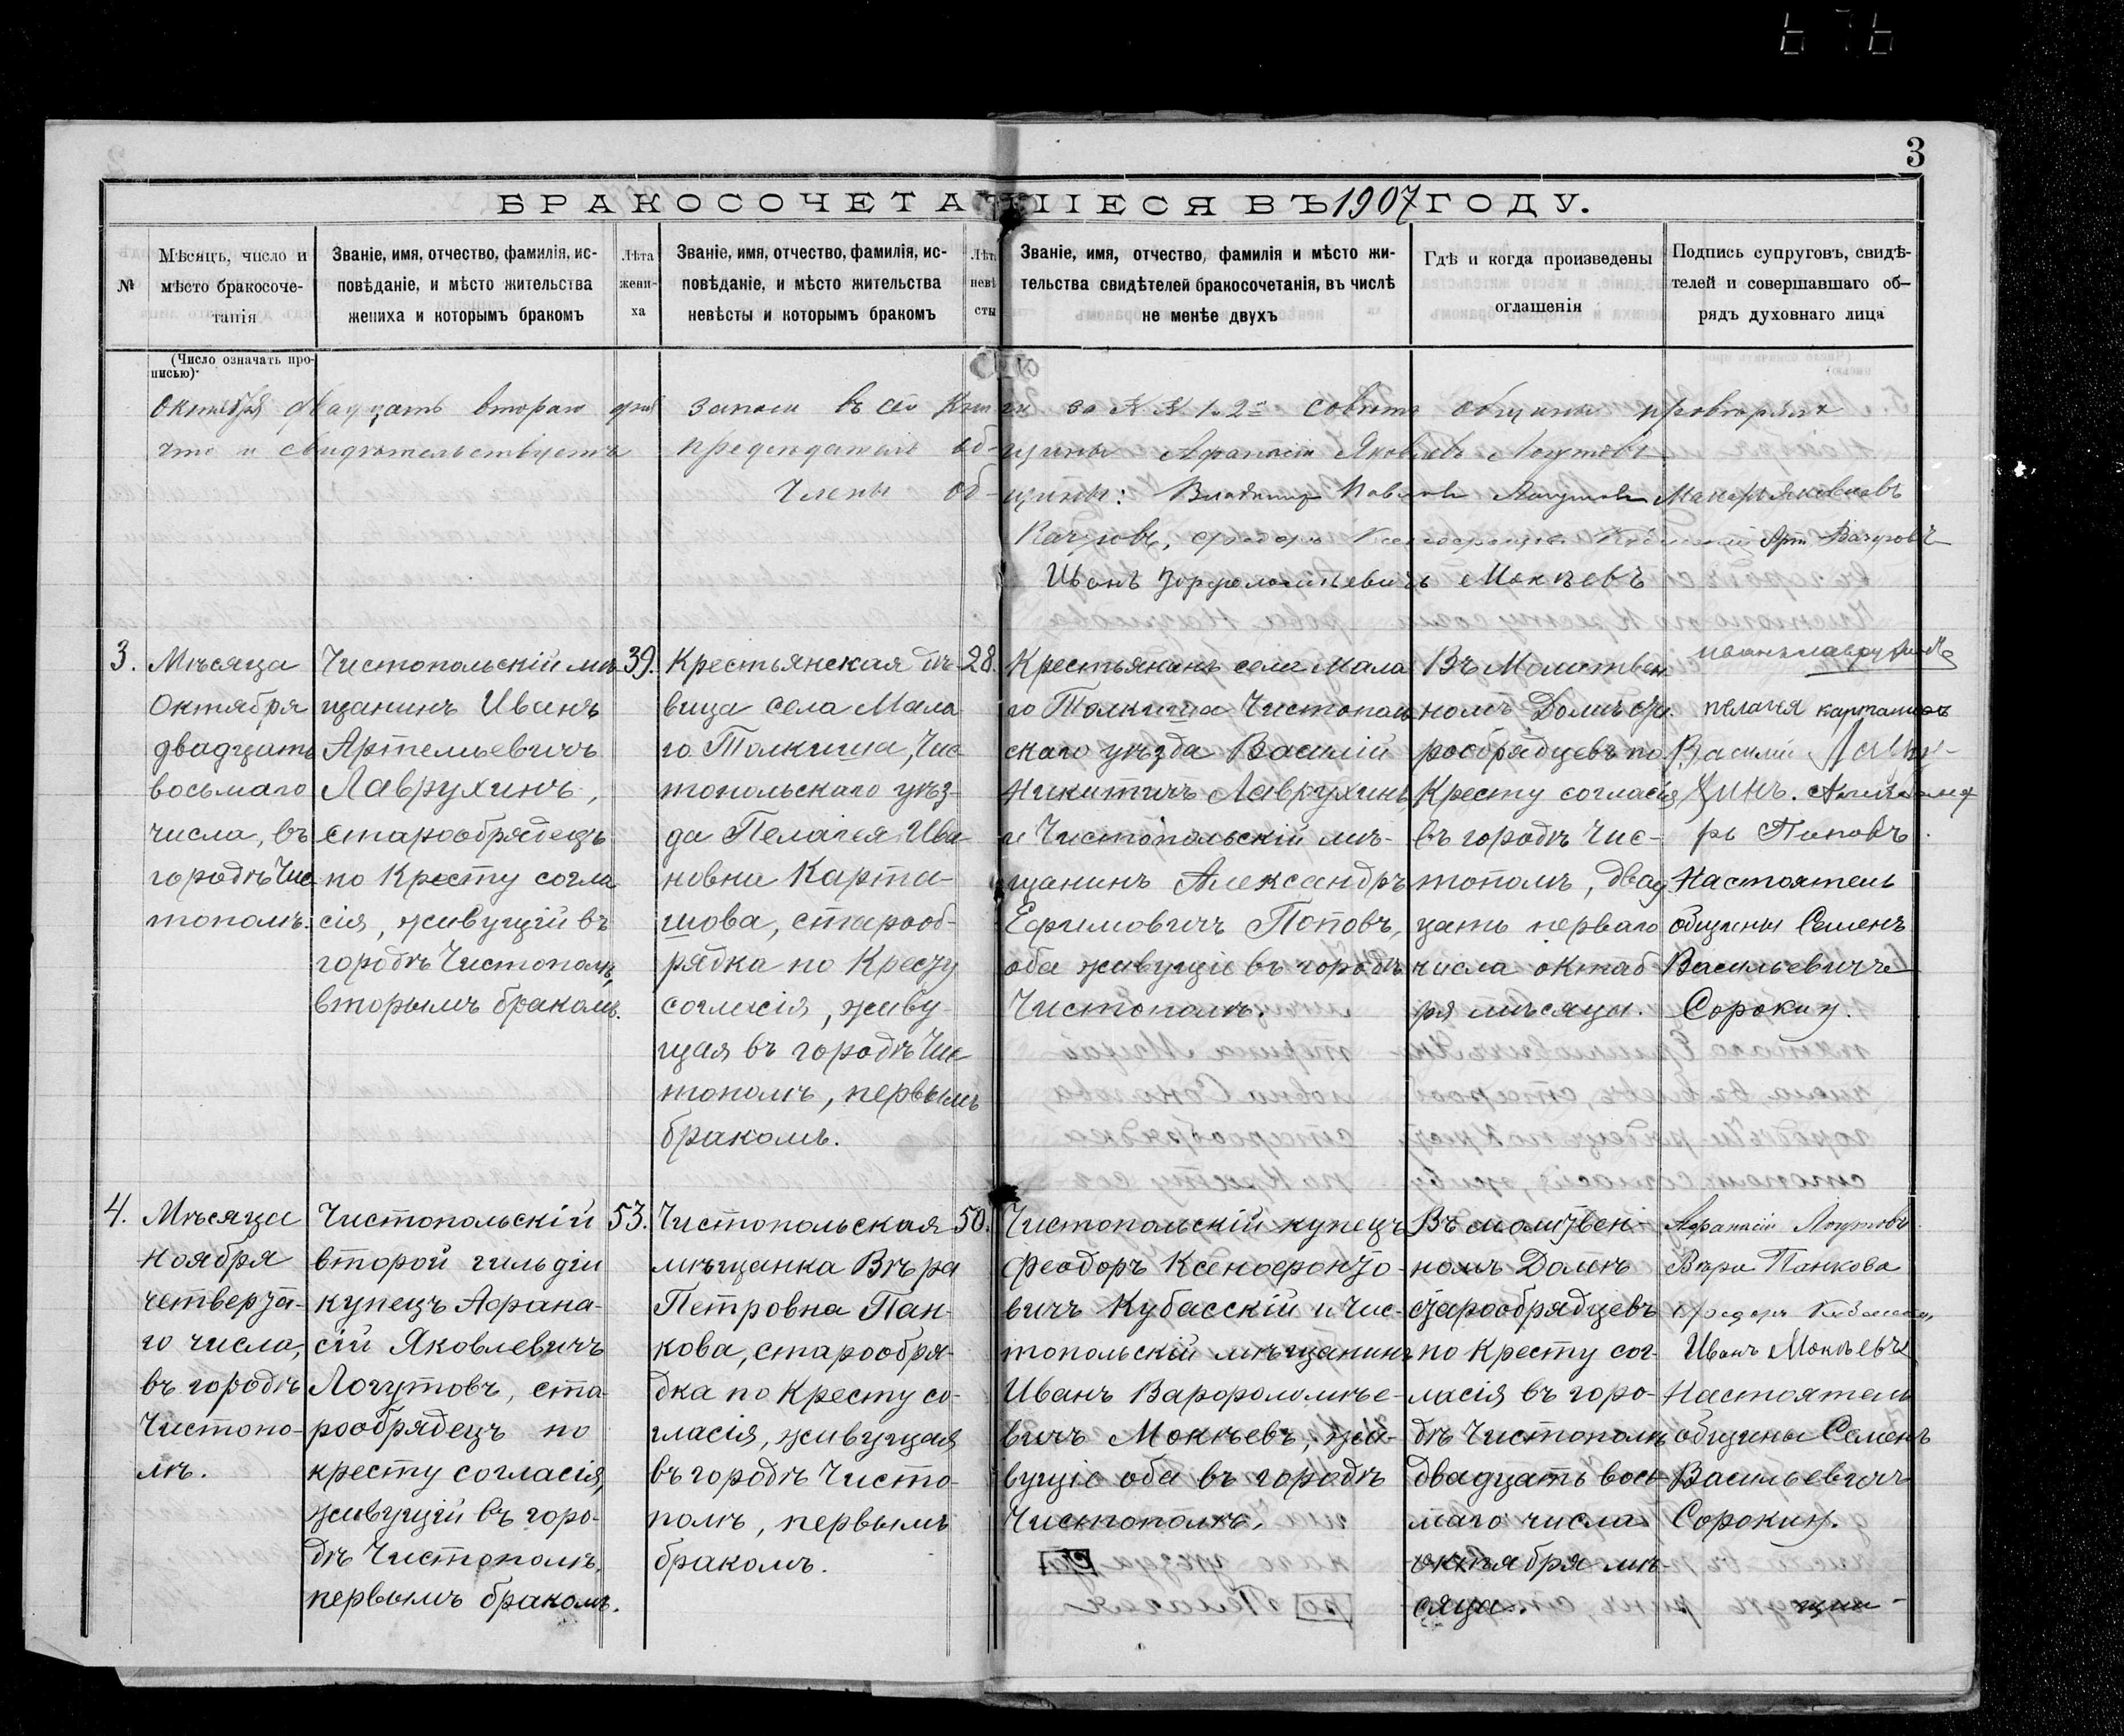 3
БРАКОСОЧЕТАВШІЕСЯ ВЪ 1907 ГОДУ.
№
Мѣсяцъ, число и
мѣсто бракосоче-
танія
Званіе, имя, отчество, фамилія, ис-
повѣданіе, и мѣсто жительства
жениха и которымъ бракомъ
Лѣта
жени-
ха
Званіе, имя, отчество, фамилія, ис-
повѣданіе, и мѣсто жительства
невѣсты и которымъ бракомъ
Лѣта
невѣ
сты
Званіе, имя, отчество, фамилія и мѣсто жи-
тельства свидѣтелей бракосочетанія, въ числѣ
не менѣе двухъ
Гдѣ и когда произведены
оглашенія
Подпись супруговъ, свидѣ-
телей и совершавшаго об-
рядъ духовнаго лица
(Число означать про-
писью)
Октября двадцать втораго дня записи въ сей книги за № № 1. 2й совѣтъ общины провѣрялъ
что и свидѣтельствуетъ предсѣдатель общины Афанасій Яковлевъ Логутовъ
Члены общины: Владимиръ Павловъ Логутовъ Макаръ Яковлевъ
Вачуговъ,
Иванъ Мокѣевъ
3.
Мѣсяца
Октября
двадцать
восьмаго
числа, въ
городѣ Чис
тополѣ.
Чистопольскій мѣ-
щанинъ Иванъ
Артемьевичъ
Лаврухинъ,
старообрядецъ
по Кресту согла
сія, живущій въ
городѣ Чистополѣ,
вторымъ бракомъ.
39.
Крестьянская дѣ-
вица села Мала
го Толкиша, Чис
топольскаго уѣз-
да Пелагея Ива
новна Карта-
шова, старооб-
рядка по Кресту
согласія, живу-
щая въ городѣ Чис
тополѣ, первымъ
бракомъ.
28.
Крестьянинъ села Мала
го Толкиша Чистополь
скаго уѣзда Василій
Никитичъ Лаврухинъ
и Чистопольскій мѣ-
щанинъ Александръ
Ефимовичъ Поповъ,
оба живущіе въ городѣ
Чистополѣ.
Въ Молитвен
номъ Домѣ ста
рообрядцевъ по
Кресту согласія
въ городѣ Чис-
тополѣ, двад
цать перваго
числа октяб
ря мѣсяца.
иванъ лаврухинъ
пелагея карташовъ
Василий Лавру-
хинъ. Александ
ръ Поповъ.
Настоятель
общины Семенъ
Васильевичъ
Сорокин.
4.
Мѣсяца
Ноября
четверта-
го числа,
въ городѣ
Чистопо-
лѣ.
Чистопольскій
второй гильдіи
купецъ Афана-
сій Яковлевичъ
Логутовъ, ста-
рообрядецъ по
кресту согласія,
живущій въ горо-
дѣ Чистополѣ,
первымъ бракомъ.
53.
Чистопольская
мѣщанка Вѣра
Петровна Пан-
кова, старообря-
дка по Кресту со-
гласія, живущая
въ городѣ Чисто-
полѣ, первымъ
бракомъ.
50.
Чистопольскій купецъ
Феодоръ Ксенофонто-
вичъ Кубасскій и Чис-
топольскій мѣщанинъ
Иванъ Варфоломѣе-
вичъ Мокѣевъ, жи-
вущіе оба въ городѣ
Чистополѣ.
Въ молитвен-
номъ Домѣ
старообрядцевъ
по Кресту сог-
ласія въ горо-
дѣ Чистополѣ
двадцать вось-
маго числа
октября мѣ-
сяца.
Афанасій Логутовъ
Вѣра Панкова
Федоръ Кубасскій
Иванъ Мокѣевъ
Настоятель
общины Семенъ
Васильевичъ
Сорокин.